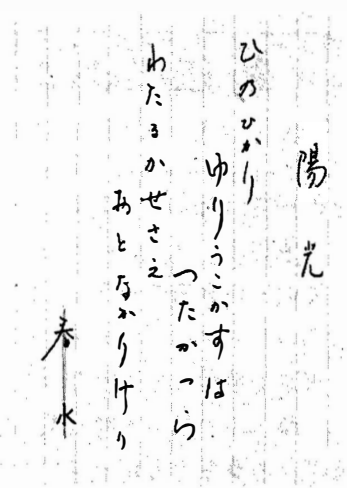 陽光
ひのひかり
ゆりうこかすは
つたかつら
わたるかせさえ
あとなかりけり
春水